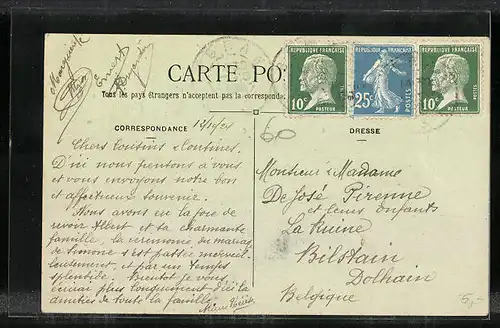 CARTE PO
Tous les pays étrangers n'acceptent pas la correspondance
RÉPUBLIQUE FRANÇAISE
10c
POSTES
PASTEUR
REPUBLIQUE FRANÇAISE
25c
POSTES
RÉPUBLIQUE FRANÇAISE
10c
POSTES
PASTEUR
Ernest
CORRESPONDANCE
60
DRESSE
Chers Cousins & Cousines.
D'ici nous pensons à vous
et vous envoyons notre bon
et affectueux souvenir.
Nous avons eu la joie de
revoir Albert et sa charmante
famille, la cérémonie du mariage
de Simone s'est passée merveil-
leusement, et par un temps
splendide. Bientôt je vous
écrirai plus longuement d'ici là
amitiés de toute la famille
Monsieur & Madame
De José Pirenne
et leurs enfants
La Ruine
Bilstain
Dolhain
Belgique
5,-